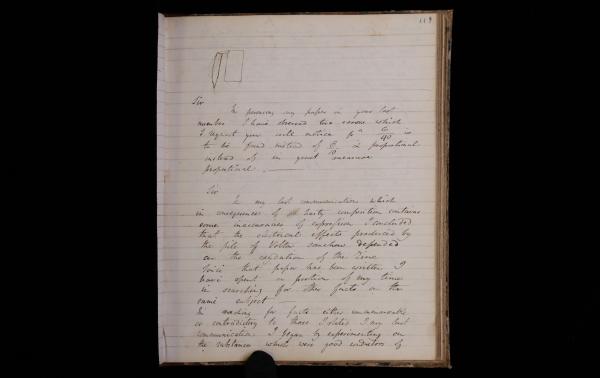 119
Sir
In perusing my paper in your last
number I have observed two errors which
I request you will notice pa 6/40 is
to be found instead of 6/10 & proportional
instead of in great measure
proportional.
Sir
In my last communication which
in consequence of hasty composition contains
some inaccuracies of expression I concluded
that the electrical effects produced by
the pile of Volta somehow depended
on the oxydation of the Zinc
Since that paper has been written I
have spent a portion of my time
in searching for other facts on the
same subject
In searching for facts either
or contradictory to those I stated in my last
communication I began by experimenting on
the substances which were good conductors of